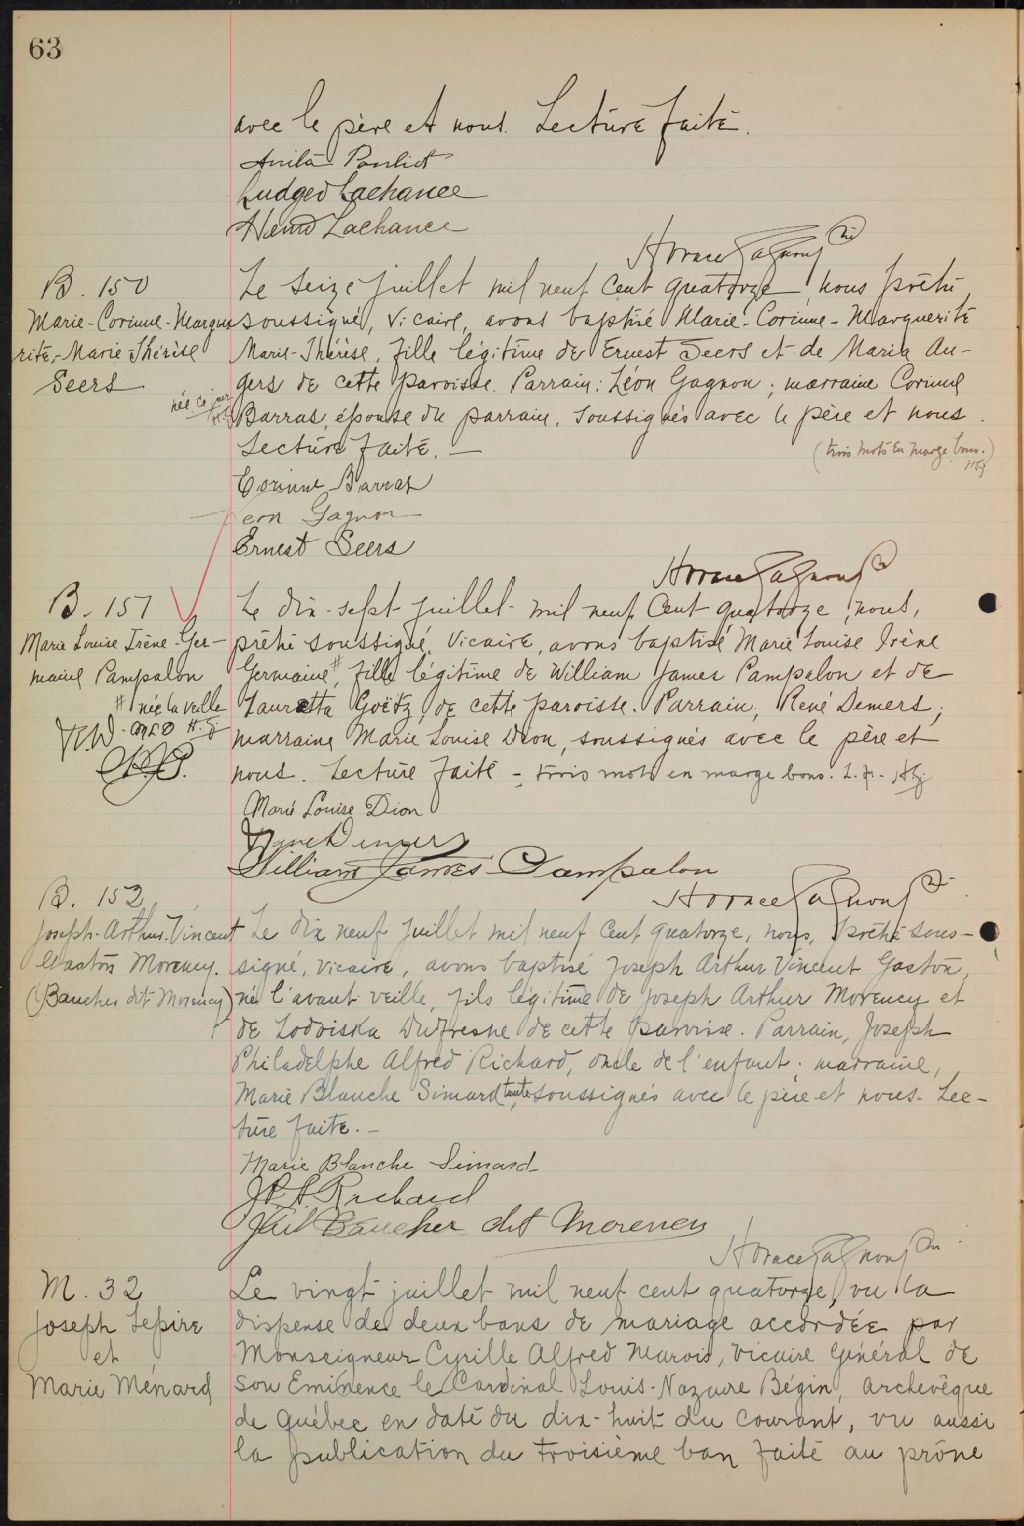 63
avec le père et nous. Lecture faite.
Anita Pouliot
Ludger Lachance
Henri Lachance
Horace Gagnon, Vic
B. 150
Marie-Corinne-Margue
rite, Marie Thérèse
Seers
née ce jour
H.G.
Le seize juillet mil neuf cent quatorze, nous prêtre,
soussigné, vicaire, avons baptisé Marie-Corinne-Marguerite
Marie-Thérèse, fille légitime de Ernest Seers et de Maria An-
gers de cette paroisse. Parrain: Léon Gagnon; marraine Corinne
Barras, épouse du parrain, soussignés avec le père et nous.
Lecture faite. —
(trois mots en marge bons.)
H.G.
Corinne Barras
Leon Gagnon
Ernest Seers
Horace Gagnon, Vic
B. 151
Marie Louise Irène Ger-
maine Pampalon
# née la veille
MLD H.G.
Le dix-sept juillet mil neuf cent quatorze, nous,
prêtre soussigné, vicaire, avons baptisé Marie Louise Irène
Germaine,# fille légitime de William James Pampalon et de
Lauretta Goëtz, de cette paroisse. Parrain, René Demers;
marraine Marie Louise Dion, soussignés avec le père et
nous. Lecture faite - trois mots en marge bons. L.f. - H.G.
Marie Louise Dion
René Demers
William James Pampalon
Horace Gagnon, Vic
B. 152
Joseph-Arthur-Vincent
Gaston Morency.
(Baucher dit Morency)
Le dix neuf juillet mil neuf cent quatorze, nous, prêtre sous-
signé, vicaire, avons baptisé Joseph Arthur Vincent Gaston,
né l'avant veille, fils légitime de Joseph Arthur Morency et
de Lodoiska Dufresne de cette paroisse. Parrain, Joseph
Philadelphe Alfred Richard, oncle de l'enfant; marraine,
Marie Blanche Simard, tante, soussignés avec le père et nous. Lec-
ture faite. -
Marie Blanche Simard
J.P.A. Richard
Baucher dit Morency
Horace Gagnon, Vic
M. 32
Joseph Lepire
et
Marie Ménard
Le vingt juillet mil neuf cent quatorze, vu la
dispense de deux bans de mariage accordée par
Monseigneur Cyrille Alfred Marois, Vicaire Général de
Son Eminence le Cardinal Louis-Nazaire Bégin, archevêque
de Québec en date du dix-huit du courant, vu aussi
la publication du troisième ban faite au prône